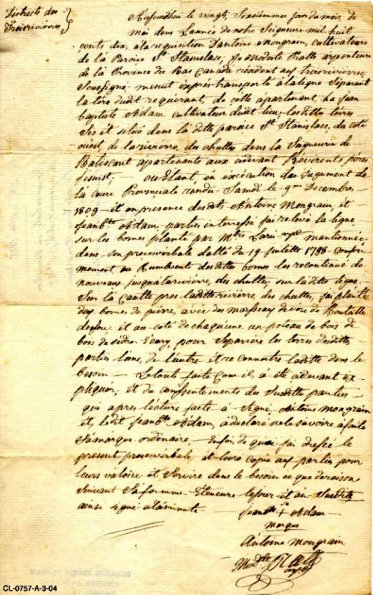 Districts des
Troisrivierres
Aujourdhui le vingt, Sixiemme jour du mois de
mai dem Lannée de nôtre Seigneur mil huit
cents dix, a la requisition Dantoine Mongrain, cultivateur
de la Paroice St Stanislace, Je
de la Province du Bas Canada residant aux troisrivierres,
Soussigné, me suit exprès transporté a la ligne Séparant
la terre dudit requerant, de celle apartenant a Jean
baptiste Adam cultivateur dudit lieu, lesdittes terres
Sis et situé dans la ditte paroice St Stanislace, du coté
ouest, de la rivierre, des chuttes dans la Seigneurie de
Batiscant apartenants aux cidevant Réverents, péres
jesuist; ou Etant, en execution du Jugement de
la Cour Provinciale rendu Samdi le 9me Decembre
1809 et en presence desdits Antoine Mongrain, et
Jeanbte Adam parties interessée fait relevé la ligne
sur les bornes planté par Mtre mantionnée
dans son procesverballe datté du 19 Juillette 1788 confor
mement au Rumbvents desdittes bornes les
nouveau jusqua la rivierre, des chuttes, sur la ditte ligne
Sur la Cautte pres laditte rivierre des chuttes, j'ai planté
deux bornes de pierre, avec des morseaux de verre de boutaille
dessous et au coté de chaquienne un poteau de bois de
bois de cedre Ecary, pour Séparérer les terres desdittes
parties lune de lautre et reconnaitre laditte dans le
besoin Letout faite Comm il a été ci devant ex
pliquer, et du consentements des Susdittes parties
qui apres lecture faite a Signé, Antoine mongrain
et, ledit Jeanbte Adam, a declaré ne le savoire a faite
Sa marque ordinaire, Enfois de quoi jai dressé le
present procesverballe et livré copie aux parties pour
leurs valoire et Servire dans le besoin ce que de raison
Suivant Sa forme & teneure le jour et an Susdits
ainsi signé ala minutte
Jeanbte + Adam
marque
Antoine Mongrain
CL-0757-A-3-04